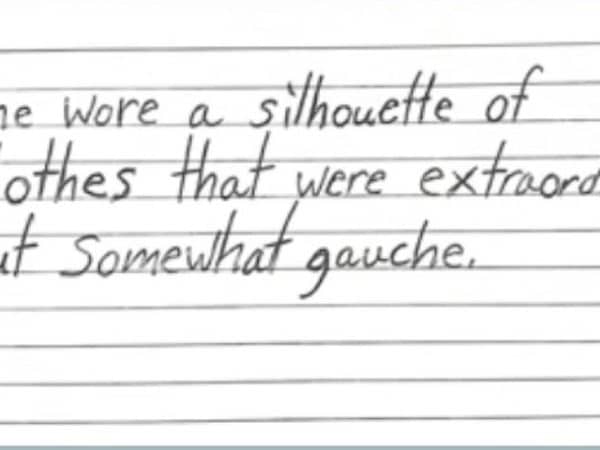 he wore a silhouette of
lothes that were extraord
ut somewhat gauche.